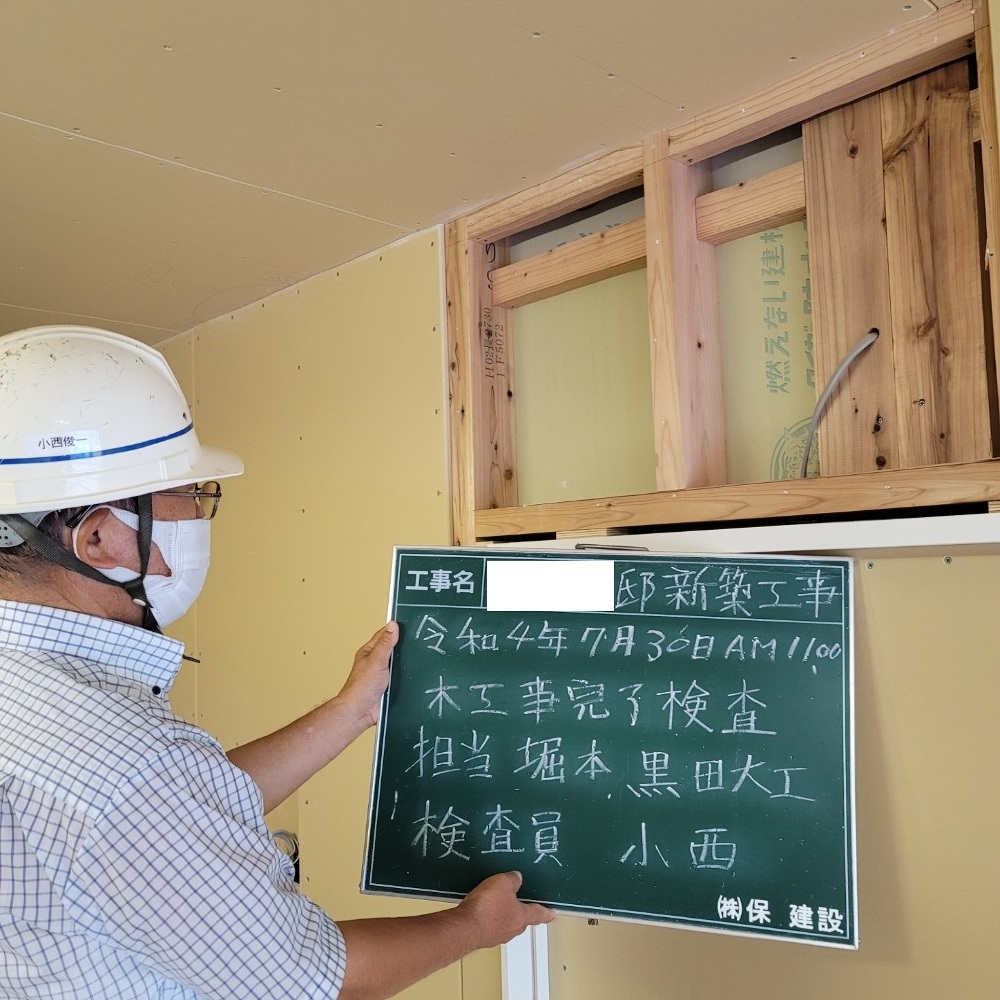 工事名 邸新築工事
令和4年7月30日AM11:00
木工事完了検査
担当 堀本.黒田大工
検査員 小西
㈱保 建設
小西俊一
燃えない建材